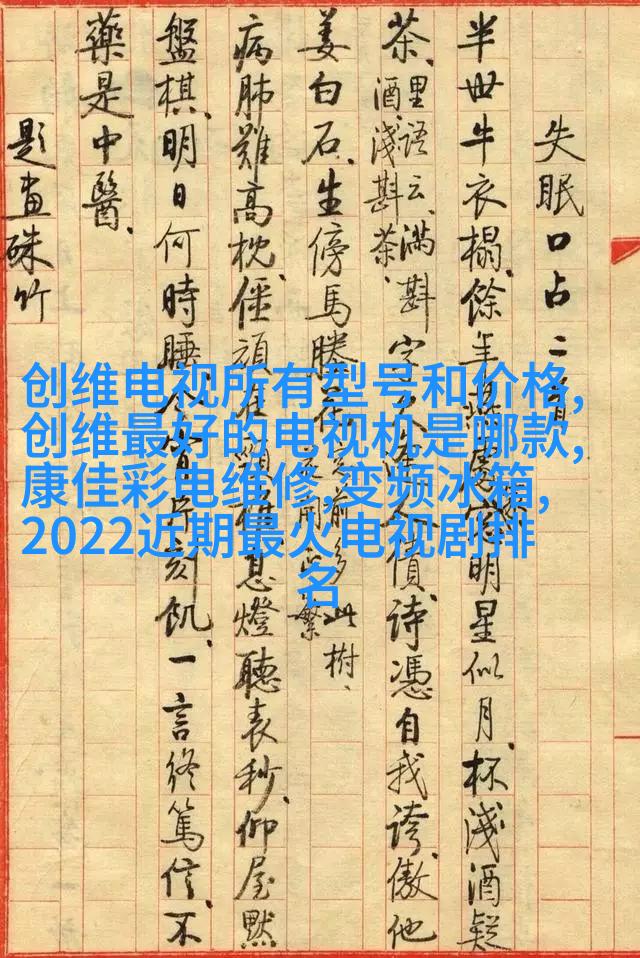 失眠口占二首
半世牛衣榻、餘年燕明星似月、杯淺酒疑
茶、里語云、滿斟酒、淺斟茶、字不人價、诗憑自我誇、傲他
姜白石、生傍馬塍前多此樹、繁
病肺難高枕、僵頑息燈聽表秒、仰屋默
盤棋、明日何時睡、今宵片刻飢、一言終篤信、不
藥是中醫、
題畫硃竹
创维电视所有型号和价格,
创维最好的电视机是哪款,
康佳彩电维修,变频冰箱,
2022近期最火电视剧排
名